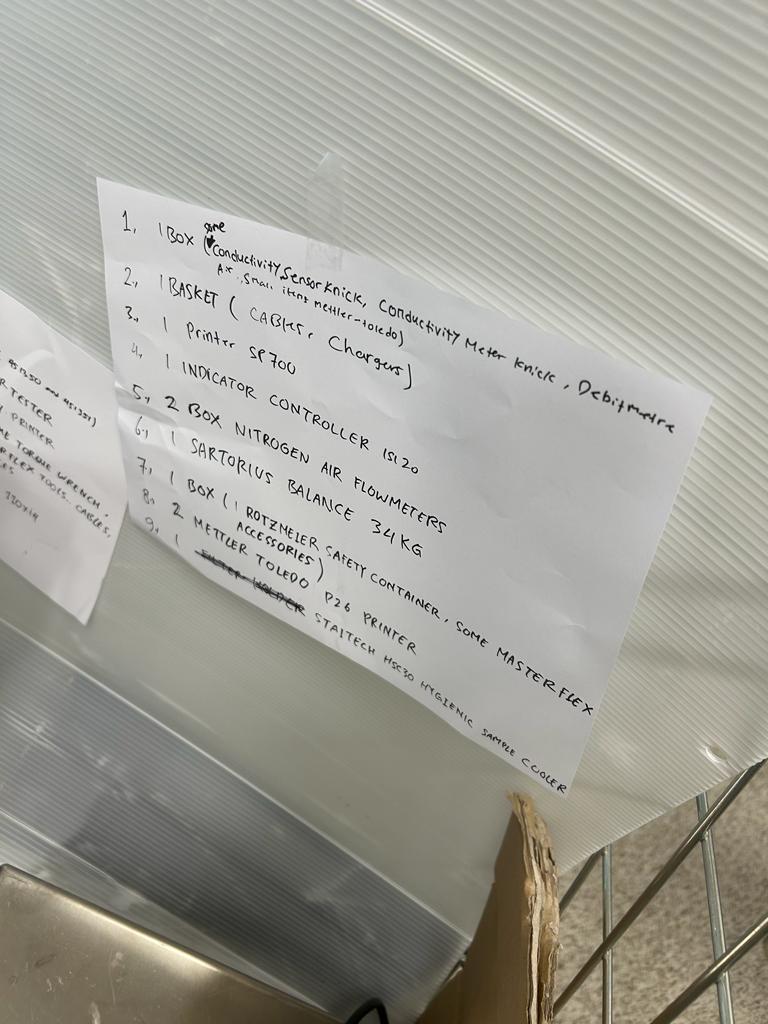 1. 1 BOX (one Conductivity Sensor Knick, Conductivity Meter Knick, Debitmetre
Small items Mettler-toledo)
2. 1 BASKET ( CABles, Chargers)
3. 1 Printer SP700
4. 1 INDICATOR CONTROLLER
5. 2 BOX NITROGEN AIR FLOWMETERS
6. 1 SARTORIUS BALANCE 34KG
7. 1 BOX ( 1 ROTZMEIER SAFETY CONTAINER, SOME MASTERFLEX
ACCESSORIES)
8. 2 METTLER TOLEDO P26 PRINTER
9. 1 STAITECH HSC30 HYGIENIC SAMPLE COOLER
TESTER
PRINTER
TORQUE WRENCH,
TOOLS.. CABLES,